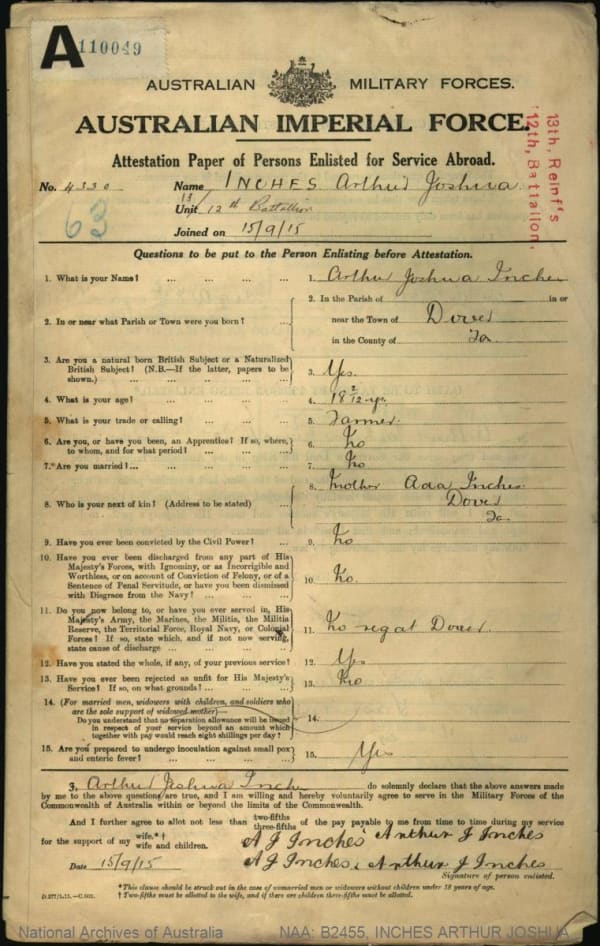 A 110049
AUSTRALIAN MILITARY FORCES.
AUSTRALIAN IMPERIAL FORCE.
13th, Reinf's
12th, Battalion,
Attestation Paper of Persons Enlisted for Service Abroad.
No. 4330 Name INCHES Arthur Joshua
63
13/
Unit 12th Battalion
Joined on 15/9/15
Questions to be put to the Person Enlisting before Attestation.
1. What is your Name? ... ... ... ... 1. Arthur Joshua Inches
2. In or near what Parish or Town were you born? ... 2. In the Parish of in or
near the Town of Dover
in the County of Tas
3. Are you a natural born British Subject or a Naturalized
British Subject? (N.B.—If the latter, papers to be
shown.) ... ... ... ... 3. Yes.
4. What is your age? ... ... ... ... 4. 18 2/12 yrs.
5. What is your trade or calling? ... ... ... 5. Farmer.
6. Are you, or have you been, an Apprentice? If so, where,
to whom, and for what period? ... ... ... 6. No
7.*Are you married?... ... ... ... ... 7. No
8. Who is your next of kin? (Address to be stated) ... 8. Mother Ada Inches
Dover
Tas.
9. Have you ever been convicted by the Civil Power? ... 9. No.
10. Have you ever been discharged from any part of His
Majesty's Forces, with Ignominy, or as Incorrigible and
Worthless, or on account of Conviction of Felony, or of a
Sentence of Penal Servitude, or have you been dismissed
with Disgrace from the Navy? ... ... ... 10. No.
11. Do you now belong to, or have you ever served in, His
Majesty's Army, the Marines, the Militia, the Militia
Reserve, the Territorial Force, Royal Navy, or Colonial
Forces? If so, state which, and if not now serving,
state cause of discharge ... ... ... ... 11. No regat Dover.
12. Have you stated the whole, if any, of your previous service? 12. Yes
13. Have you ever been rejected as unfit for His Majesty's
Service? If so, on what grounds? ... ... ... 13. No
14. (For married men, widowers with children, and soldiers who
are the sole support of widowed mother)—
Do you understand that no separation allowance will be issued
in respect of your service beyond an amount which
together with pay would reach eight shillings per day? 14.
15. Are you prepared to undergo inoculation against small pox
and enteric fever? ... ... ... ... 15. Yes
I, Arthur Joshua Inches do solemnly declare that the above answers made
by me to the above questions are true, and I am willing and hereby voluntarily agree to serve in the Military Forces of the
Commonwealth of Australia within or beyond the limits of the Commonwealth.
And I further agree to allot not less than two-fifths three-fifths of the pay payable to me from time to time during my service
for the support of my wife.*† wife and children. A J Inches Arthur J Inches
Date 15/9/15 A J Inches. Arthur J Inches
Signature of person enlisted.
*This clause should be struck out in the case of unmarried men or widowers without children under 18 years of age.
D.277/1.15.—C.502. † Two-fifths must be allotted to the wife, and if there are children three-fifths must be allotted.
National Archives of Australia NAA: B2455, INCHES ARTHUR JOSHUA